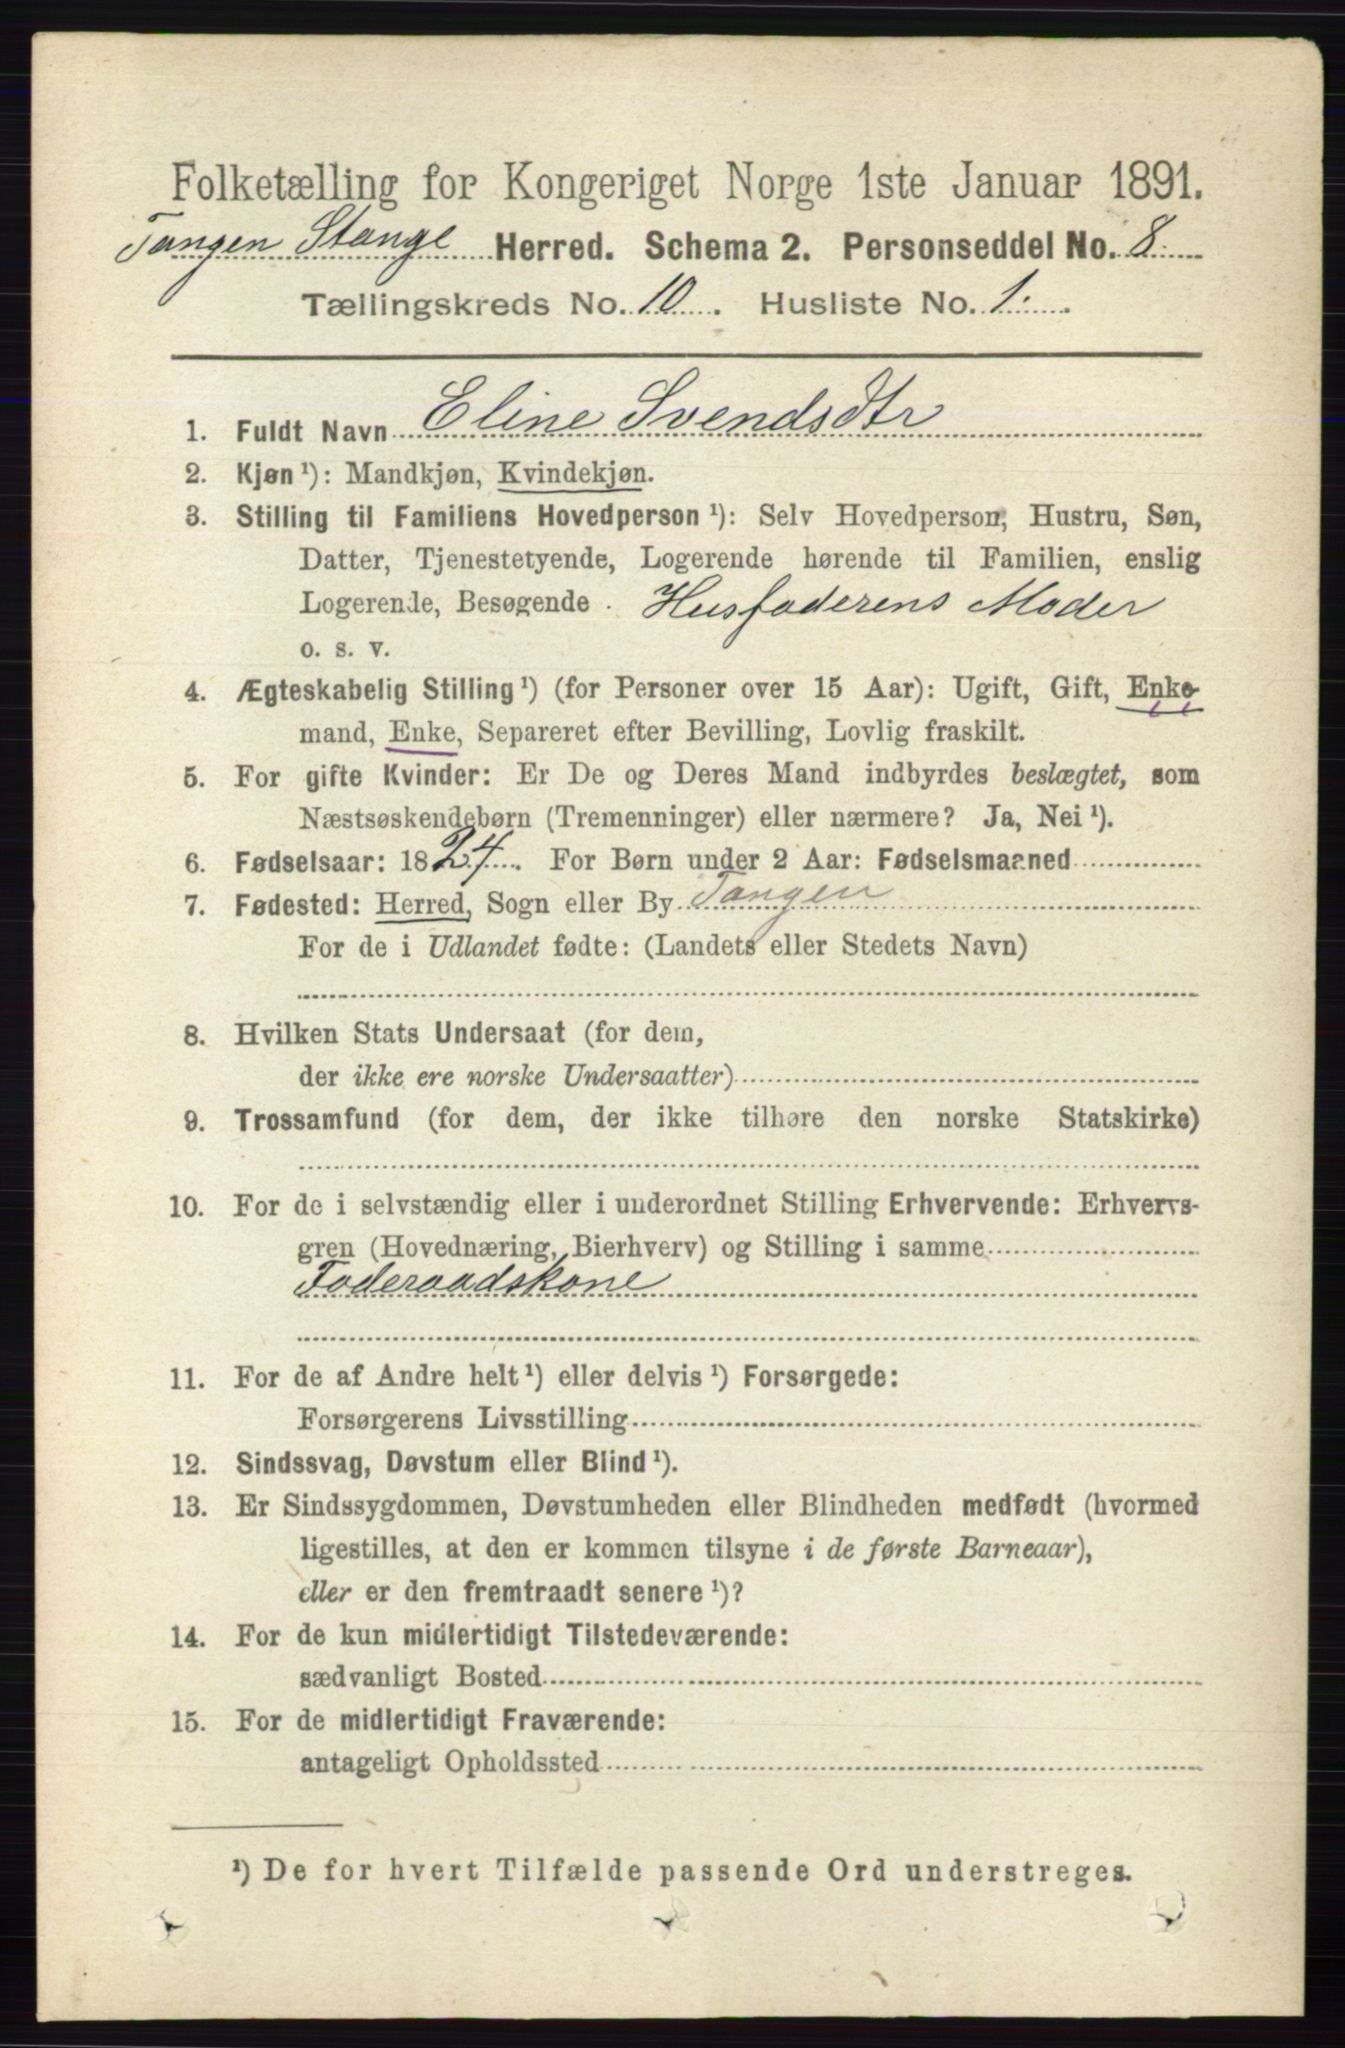 Folketælling for Kongeriget Norge 1ste Januar 1891.
Tangen Stange Herred. Schema 2. Personseddel No. 8.
Tællingskreds No. 10. Husliste No. 1.
1. Fuldt Navn Eline Svendsdtr
2. Kjøn ¹): Mandkjøn, Kvindekjøn.
3. Stilling til Familiens Hovedperson ¹): Selv Hovedperson, Hustru, Søn,
Datter, Tjenestetyende, Logerende hørende til Familien, enslig
Logerende, Besøgende . Husfaderens Moder
o. s. v.
4. Ægteskabelig Stilling ¹) (for Personer over 15 Aar): Ugift, Gift, Enke-
mand, Enke, Separeret efter Bevilling, Lovlig fraskilt.
5. For gifte Kvinder: Er De og Deres Mand indbyrdes beslægtet, som
Næstsøskendebørn (Tremenninger) eller nærmere? Ja, Nei ¹).
6. Fødselsaar: 1824. For Børn under 2 Aar: Fødselsmaaned
7. Fødested: Herred, Sogn eller By Tangen
For de i Udlandet fødte: (Landets eller Stedets Navn)
8. Hvilken Stats Undersaat (for dem,
der ikke ere norske Undersaatter)
9. Trossamfund (for dem, der ikke tilhøre den norske Statskirke)
10. For de i selvstændig eller i underordnet Stilling Erhvervende: Erhvervs-
gren (Hovednæring, Bierhverv) og Stilling i samme
Foderaadskone
11. For de af Andre helt ¹) eller delvis ¹) Forsørgede:
Forsørgerens Livsstilling
12. Sindssvag, Døvstum eller Blind ¹).
13. Er Sindssygdommen, Døvstumheden eller Blindheden medfødt (hvormed
ligestilles, at den er kommen tilsyne i de første Barneaar),
eller er den fremtraadt senere ¹)?
14. For de kun midlertidigt Tilstedeværende:
sædvanligt Bosted
15. For de midlertidigt Fraværende:
antageligt Opholdssted
¹) De for hvert Tilfælde passende Ord understreges.